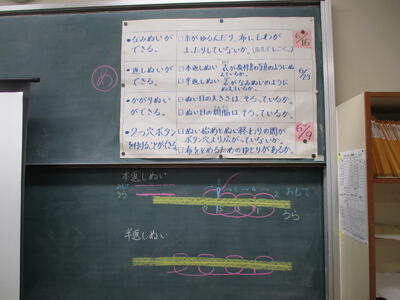 め
・なみぬいが
できる。
□糸がゆるんだり、布にしわが
よったりしていないか。
6/16
・返しぬいが
できる。
□本返しぬい
□半返しぬい 表がなみぬいのように
見えているか。
・かがりぬい
ができる。
□ぬい目の大きさは、そろっているか。
□ぬい目の間隔は、そろっているか。
・2つ穴ボタン
を付けることができる。
□ぬい始めとぬい終わりの間が
ボタン穴より広がっていないか。
□布をとめるためのゆとりがあるか。
本返しぬい
おもて
うら
おもて
うら
半返しぬい